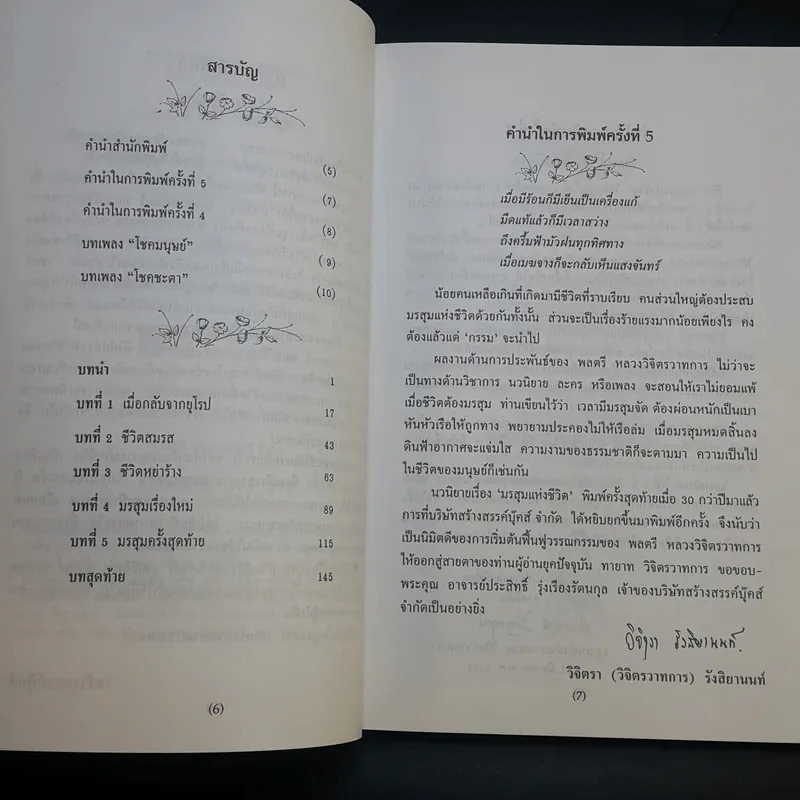 สารบัญ
คำนำสำนักพิมพ์ (5)
คำนำในการพิมพ์ครั้งที่ 5 (7)
คำนำในการพิมพ์ครั้งที่ 4 (8)
บทเพลง “โชคมนุษย์” (9)
บทเพลง “โชคชะตา” (10)
บทนำ 1
บทที่ 1 เมื่อกลับจากยุโรป 17
บทที่ 2 ชีวิตสมรส 43
บทที่ 3 ชีวิตหย่าร้าง 63
บทที่ 4 มรสุมเรื่องใหม่ 89
บทที่ 5 มรสุมครั้งสุดท้าย 115
บทสุดท้าย 145
(6)
คำนำในการพิมพ์ครั้งที่ 5
เมื่อมีร้อนก็มีเย็นเป็นเครื่องแก้
มืดแท้แล้วก็มีเวลาสว่าง
ถึงครึ้มฟ้ามัวฝนทุกทิศทาง
เมื่อเมฆจางก็จะกลับเห็นแสงจันทร์
น้อยคนเหลือเกินที่เกิดมามีชีวิตที่ราบเรียบ คนส่วนใหญ่ต้องประสบ
มรสุมแห่งชีวิตด้วยกันทั้งนั้น ส่วนจะเป็นเรื่องร้ายแรงมากน้อยเพียงไร คง
ต้องแล้วแต่ ‘กรรม’ จะนำไป
ผลงานด้านการประพันธ์ของ พลตรี หลวงวิจิตรวาทการ ไม่ว่าจะ
เป็นทางด้านวิชาการ นวนิยาย ละคร หรือเพลง จะสอนให้เราไม่ยอมแพ้
เมื่อชีวิตต้องมรสุม ท่านเขียนไว้ว่า เวลามีมรสุมจัด ต้องผ่อนหนักเป็นเบา
หันหัวเรือให้ถูกทาง พยายามประคองไม่ให้เรือล่ม เมื่อมรสุมหมดสิ้นลง
ดินฟ้าอากาศจะแจ่มใส ความงามของธรรมชาติก็จะตามมา ความเป็นไป
ในชีวิตของมนุษย์ก็เช่นกัน
นวนิยายเรื่อง ‘มรสุมแห่งชีวิต’ พิมพ์ครั้งสุดท้ายเมื่อ 30 กว่าปีมาแล้ว
การที่บริษัทสร้างสรรค์บุ๊คส์ จำกัด ได้หยิบยกขึ้นมาพิมพ์อีกครั้ง จึงนับว่า
เป็นนิมิตดีของการเริ่มต้นฟื้นฟูวรรณกรรมของ พลตรี หลวงวิจิตรวาทการ
ให้ออกสู่สายตาของท่านผู้อ่านยุคปัจจุบัน ทายาท วิจิตรวาทการ ขอขอบ-
พระคุณ อาจารย์ประสิทธิ์ รุ่งเรืองรัตนกุล เจ้าของบริษัทสร้างสรรค์บุ๊คส์
จำกัดเป็นอย่างยิ่ง
วิจิตรา รังสิยานนท์
วิจิตรา (วิจิตรวาทการ) รังสิยานนท์
(7)